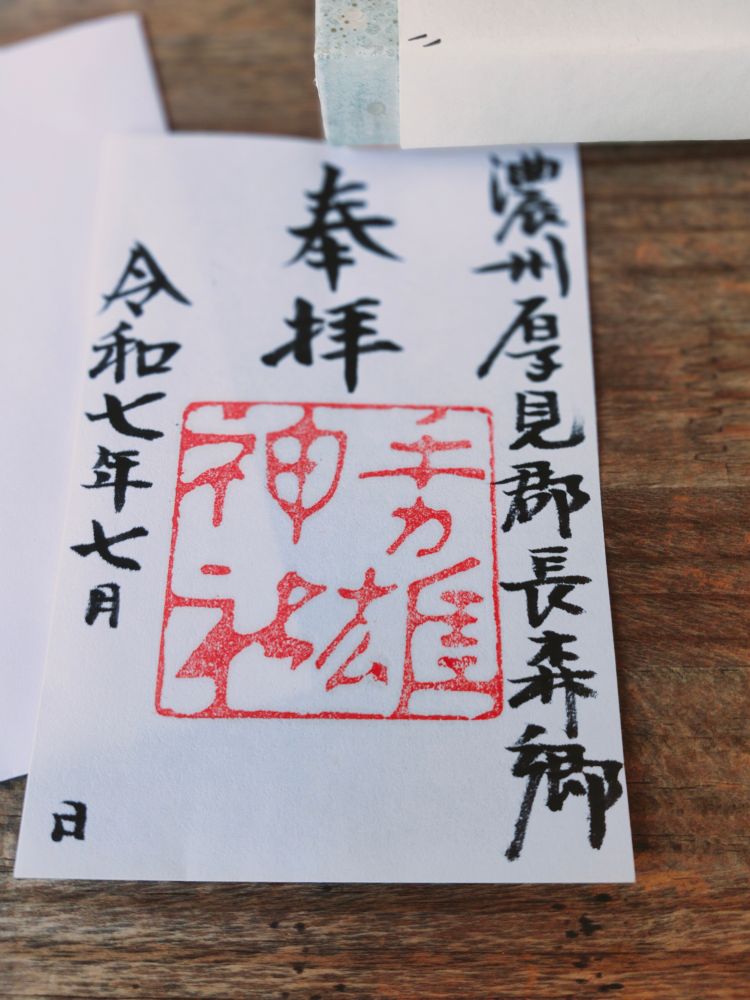 濃州厚見郡長森郷
奉拝
手力雄
神社
令和七年七月
日